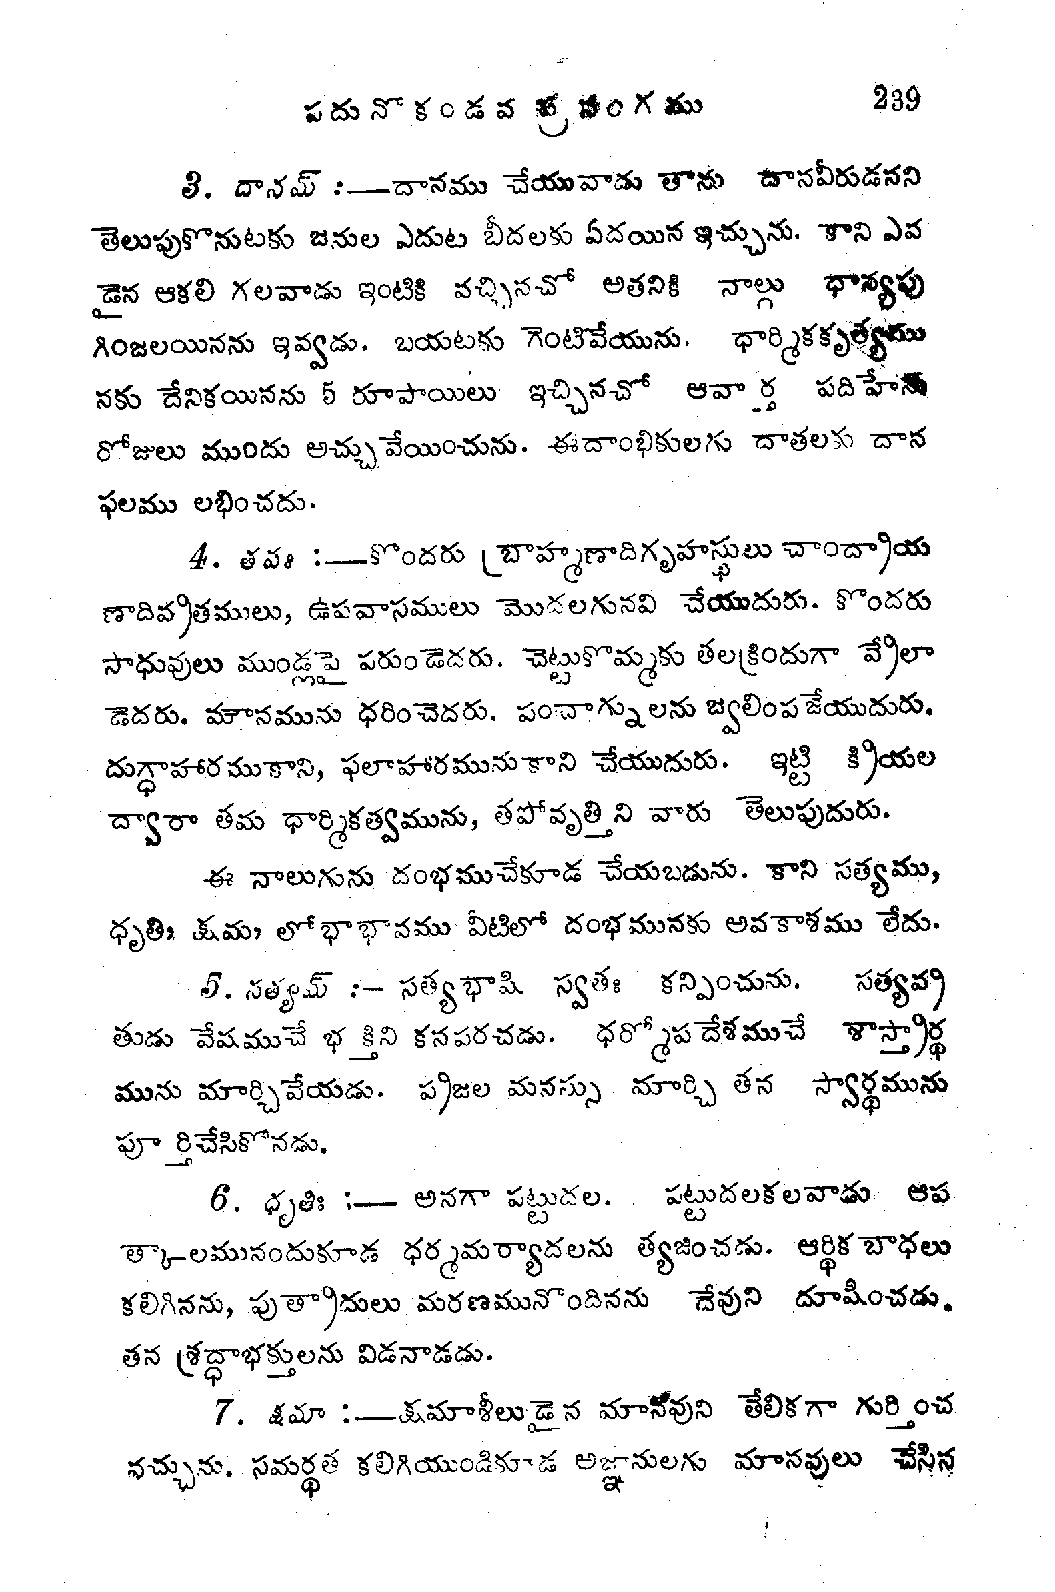 పదునొకండవ ప్రసంగము 239
3. దానమ్ :—దానము చేయువాడు తాను దానవీరుడనని
తెలుపుకొనుటకు జనుల ఎదుట బీదలకు ఏదయిన ఇచ్చును. కాని ఎవ
డైన ఆకలి గలవాడు ఇంటికి వచ్చినచో అతనికి నాల్గు ధాన్యపు
గింజలయినను ఇవ్వడు. బయటకు గెంటివేయును. ధార్మికకృత్యము
నకు దేనికయినను 5 రూపాయిలు ఇచ్చినచో ఆవార్త పదిహేను
రోజులు ముందు అచ్చువేయించును. ఈదాంభికులగు దాతలకు దాన
ఫలము లభించదు.
4. తపః :—కొందరు బ్రాహ్మణాదిగృహస్థులు చాంద్రాయ
ణాదివ్రతములు, ఉపవాసములు మొదలగునవి చేయుదురు. కొందరు
సాధువులు ముండ్లపై పరుండెదరు. చెట్టుకొమ్మకు తలక్రిందుగా వ్రేలా
డెదరు. మౌనమును ధరించెదరు. పంచాగ్నులను జ్వలింపజేయుదురు.
దుగ్ధాహారముకాని, ఫలాహారమునుకాని చేయుదురు. ఇట్టి క్రియల
ద్వారా తమ ధార్మికత్వమును, తపోవృత్తిని వారు తెలుపుదురు.
ఈ నాలుగును దంభముచేకూడ చేయబడును. కాని సత్యము,
ధృతిః క్షమ, లోభాభావము వీటిలో దంభమునకు అవకాశము లేదు.
5. సత్యమ్ :— సత్యభాషి స్వతః కన్పించును. సత్యవ్ర
తుడు వేషముచే భక్తిని కనపరచడు. ధర్మోపదేశముచే శాస్త్రార్థ
మును మార్చివేయడు. ప్రజల మనస్సు మార్చి తన స్వార్థమును
పూర్తిచేసికొనడు.
6. ధృతిః :— అనగా పట్టుదల. పట్టుదలకలవాడు ఆప
త్కాలమునందుకూడ ధర్మమర్యాదలను త్యజించడు. ఆర్థికబాధలు
కలిగినను, పుత్రాదులు మరణమునొందినను దేవుని దూషించడు.
తన శ్రద్ధాభక్తులను విడనాడడు.
7. క్షమా :—క్షమాశీలుడైన మానవుని తేలికగా గుర్తించ
వచ్చును. సమర్థత కలిగియుండికూడ అజ్ఞానులగు మానవులు చేసిన